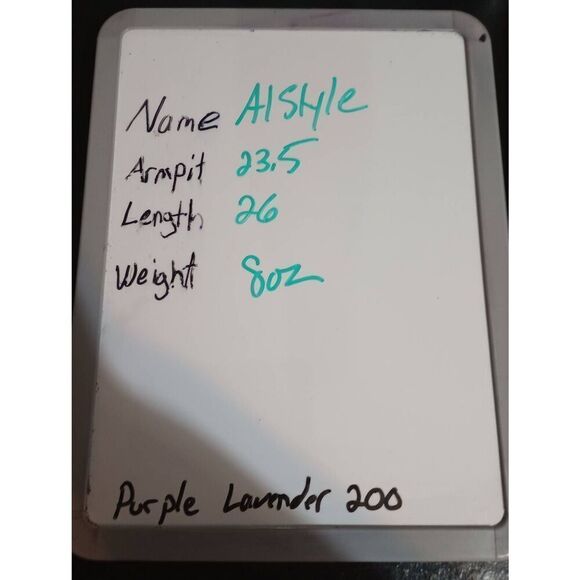 Name AlStyle
Armpit 23.5
Length 26
Weight 8oz
Purple Lavender 200